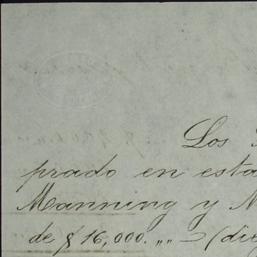 Los
prado en esta
Manning y
de $ 16,000. „„ (die